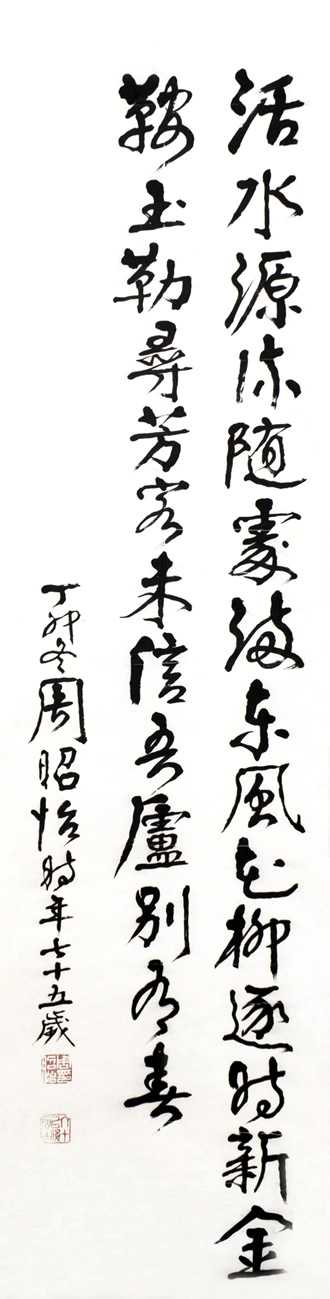 活水源流随處滿東風花柳逐時新金
鞍玉勒尋芳客未信吾廬別有春
丁卯冬周昭怡時年七十五歲